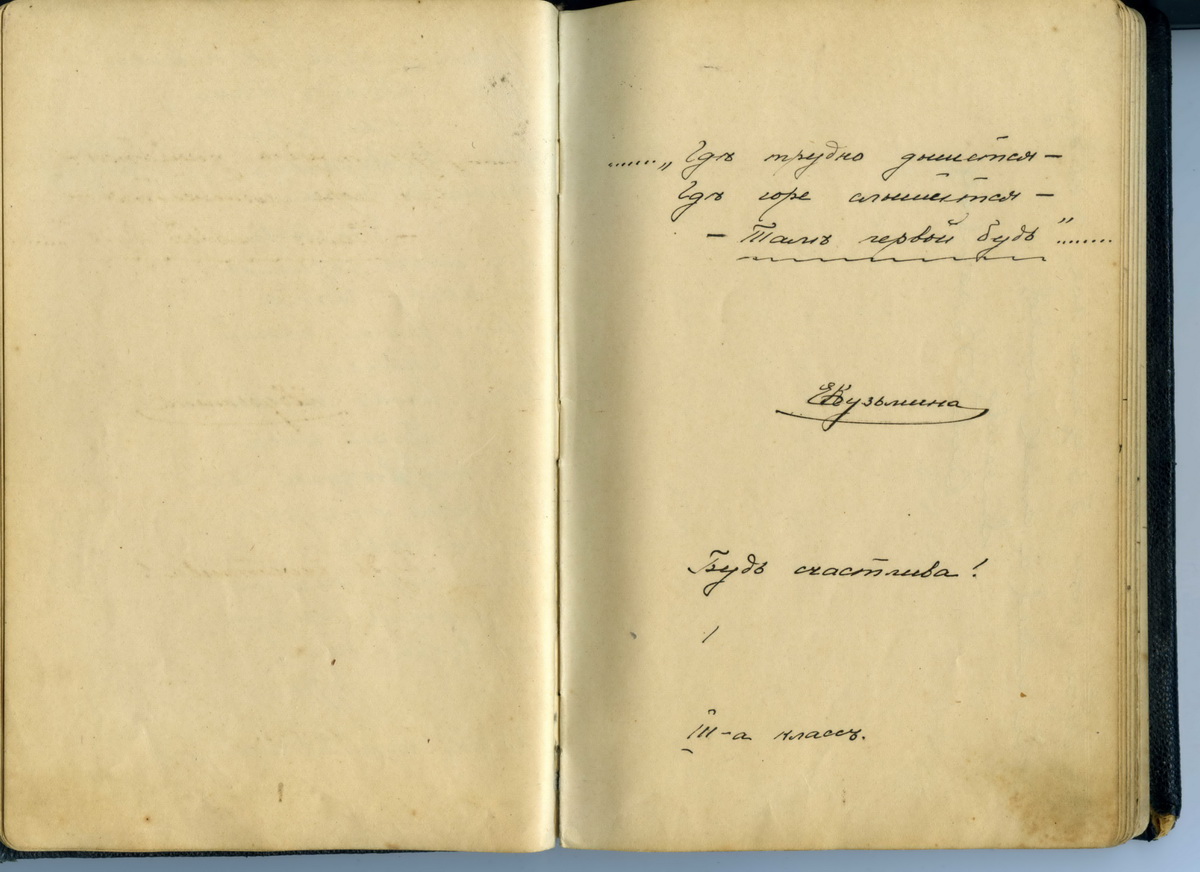 ......„Гдѣ трудно дышется –
Гдѣ горе слышется –
– Тамъ первой будь".......
ЕКузьмина
Будь счастлива!
III-а классъ.